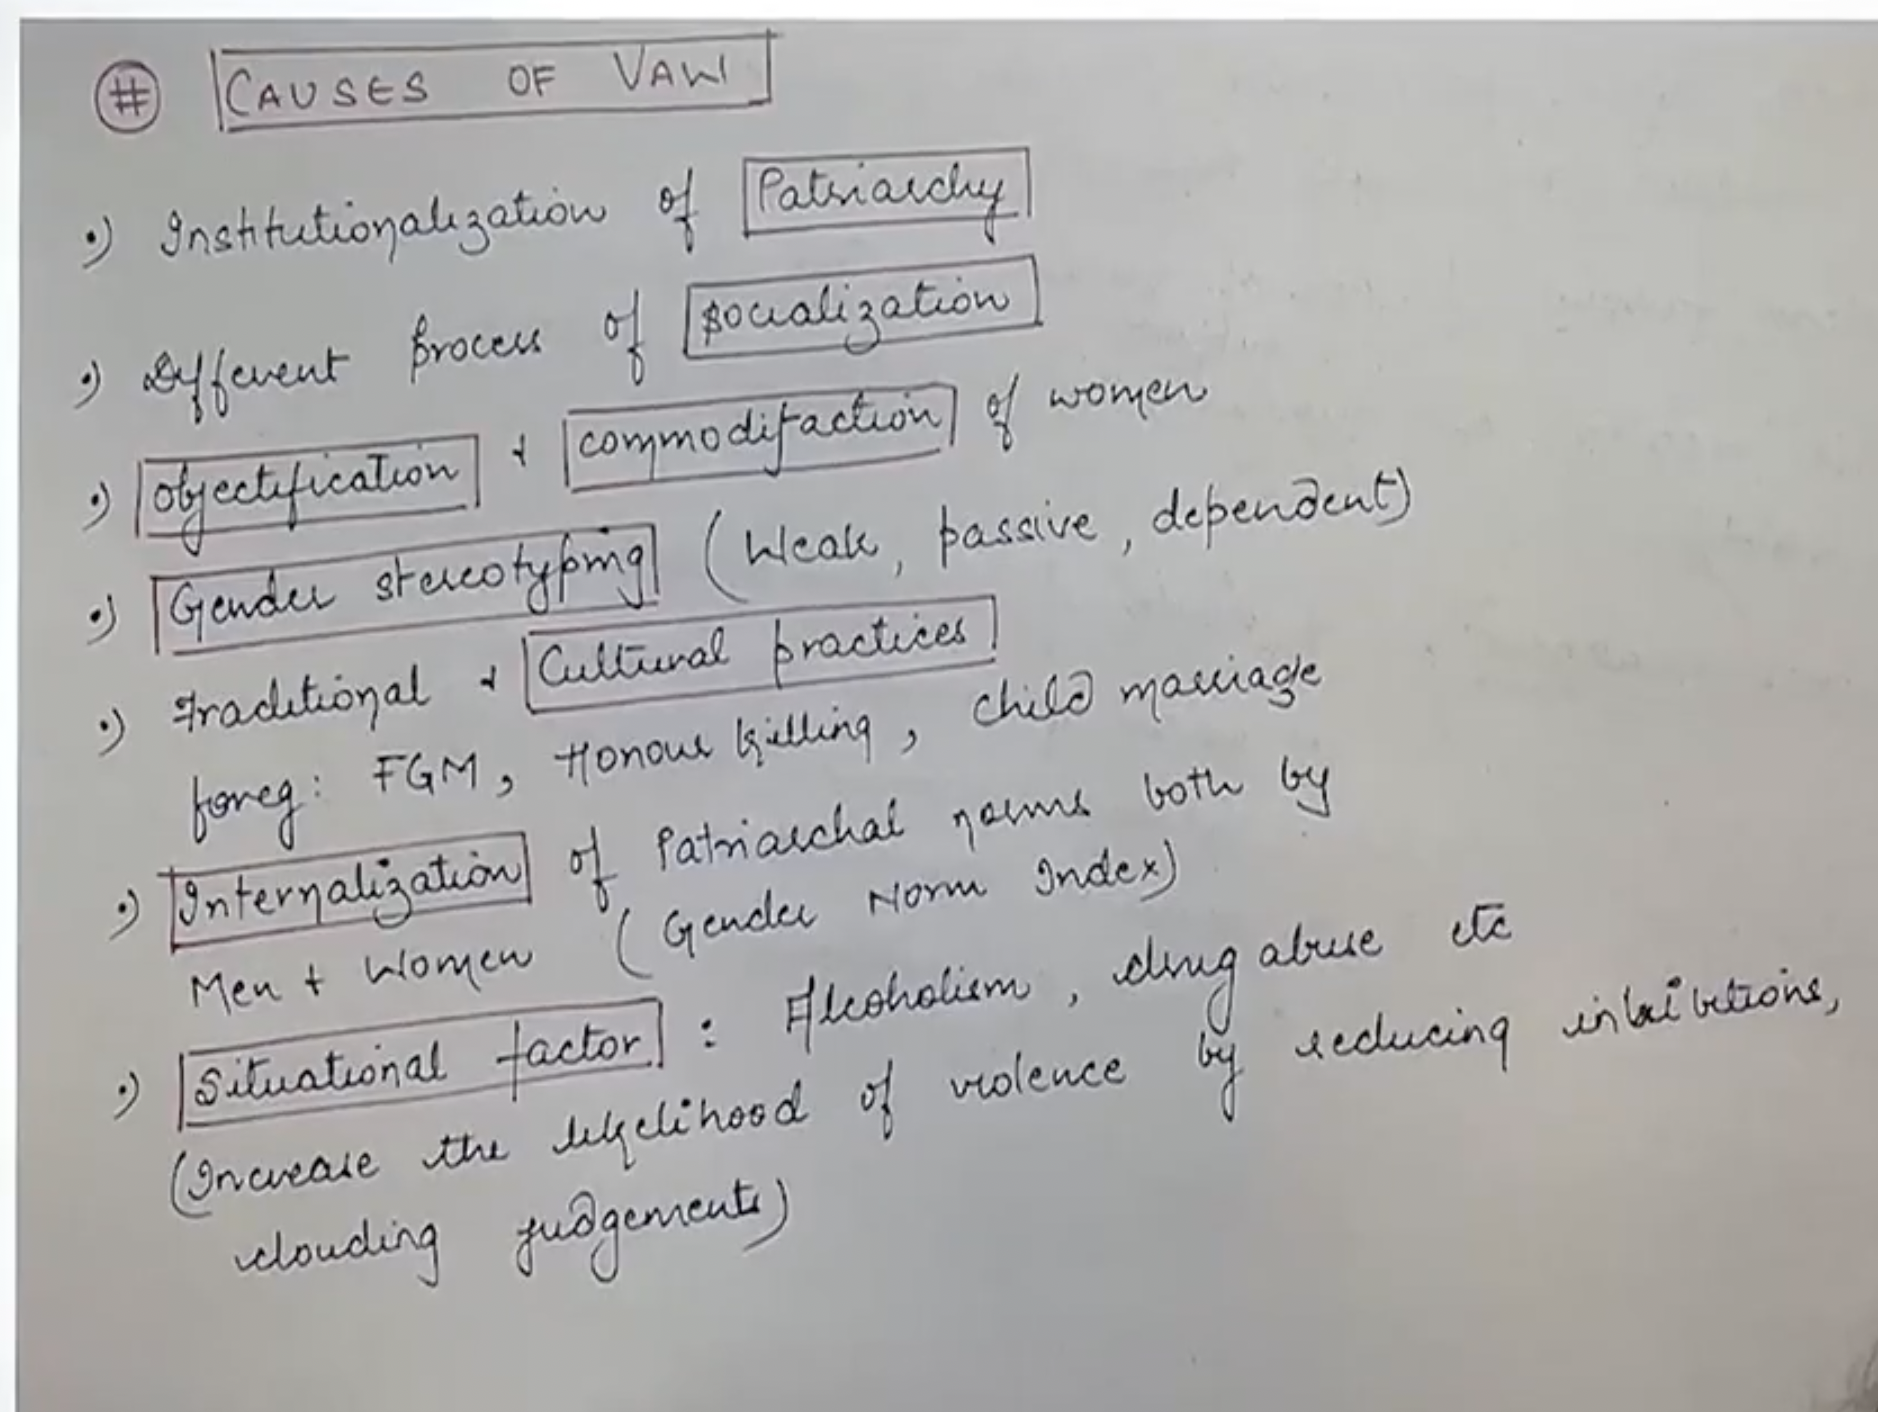 # CAUSES OF VAW
•) Institutionalization of Patriarchy
•) Different process of socialization
•) objectification + commodifaction of women
•) Gender stereotyping (Weak, passive, dependent)
•) Traditional + Cultural practices
foreg: FGM, Honour killing, child marriage
•) Internalization of Patriarchal norms both by
Men + Women (Gender Norm Index)
•) Situational factor : Alcoholism, drug abuse etc
(Increase the likelihood of violence by reducing inhibitions,
clouding judgements)